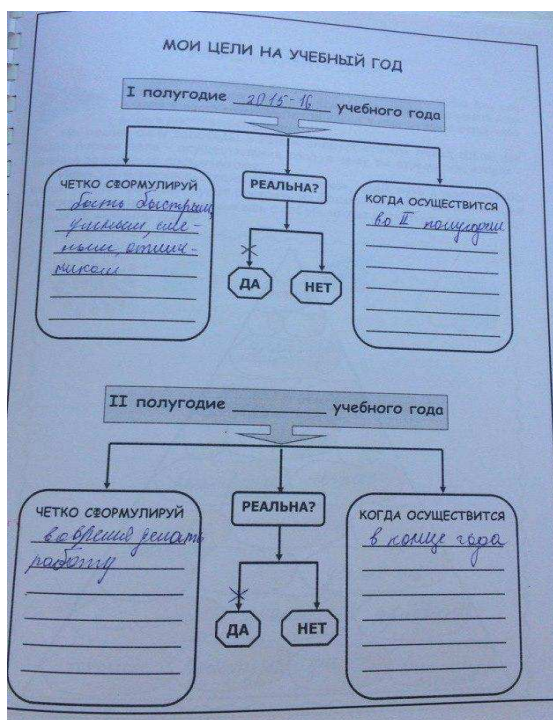 МОИ ЦЕЛИ НА УЧЕБНЫЙ ГОД
I полугодие 2015-16 учебного года
ЧЕТКО СФОРМУЛИРУЙ
быть быстрым,
умным, сме-
лым, отлич-
ником
РЕАЛЬНА?
ДА
НЕТ
КОГДА ОСУЩЕСТВИТСЯ
во II полугодии
II полугодие ________ учебного года
ЧЕТКО СФОРМУЛИРУЙ
вовремя делать
работу
РЕАЛЬНА?
ДА
НЕТ
КОГДА ОСУЩЕСТВИТСЯ
в конце года